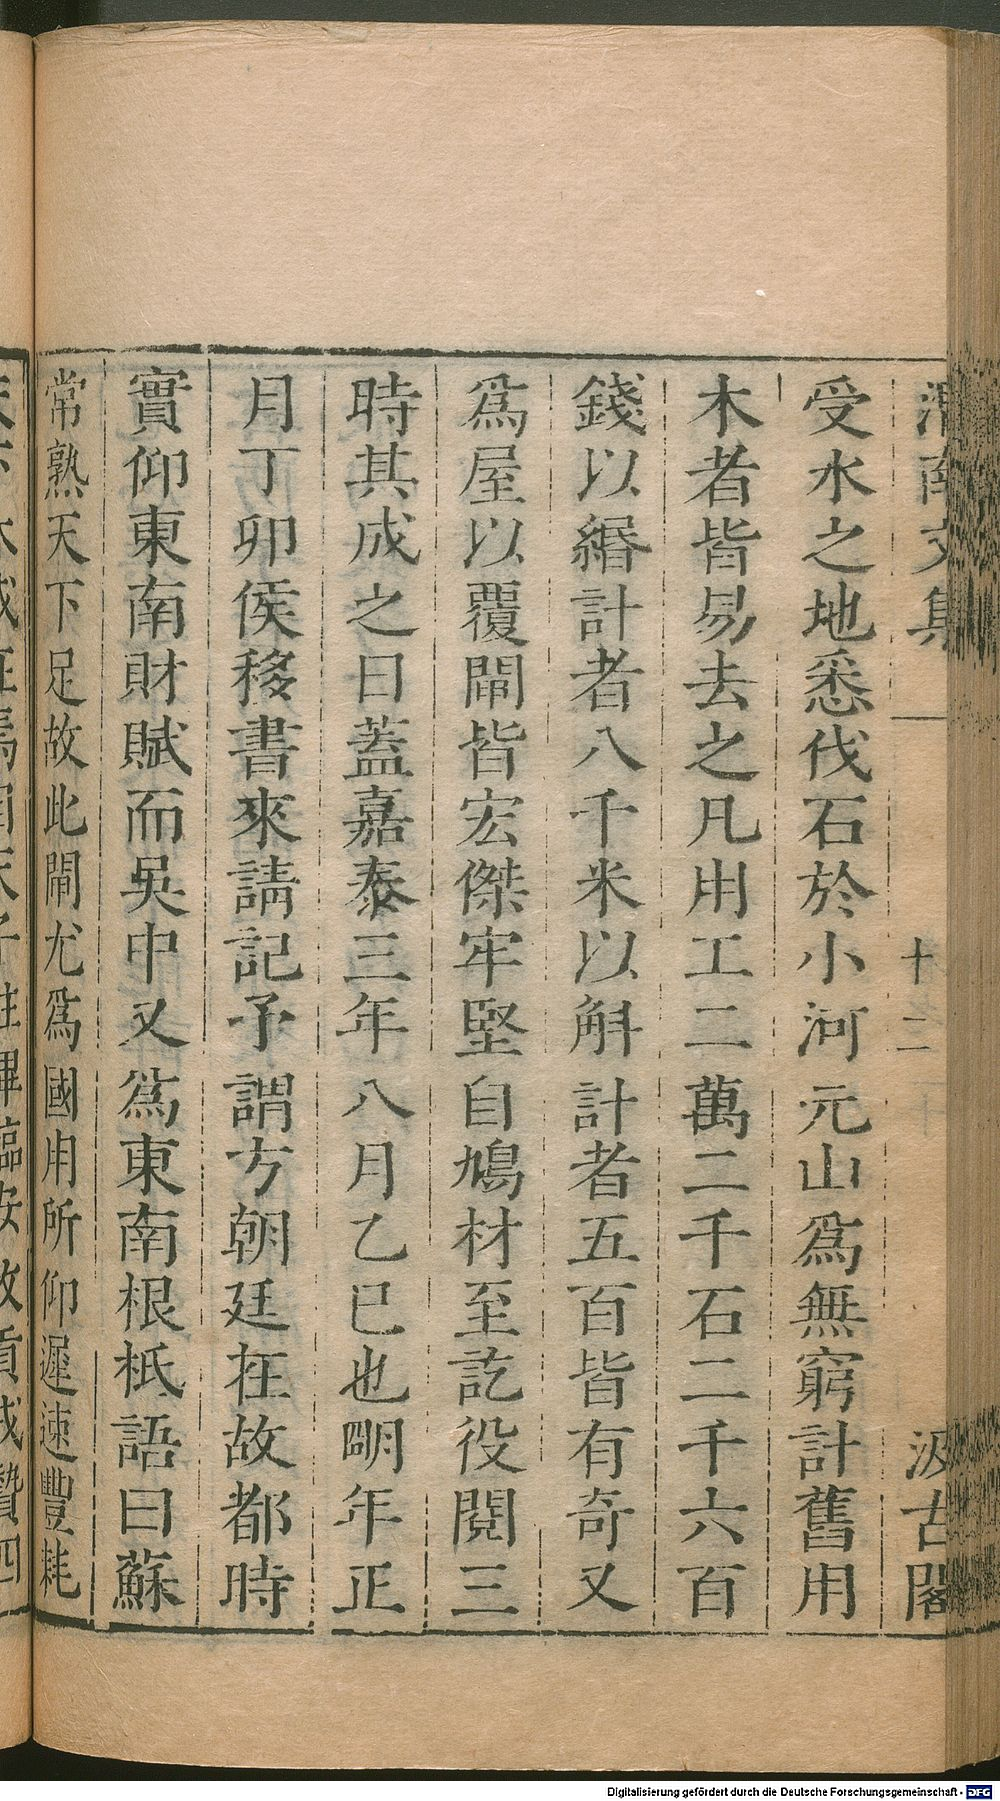 渭南文集 十二 汲古閣
受水之地悉伐石於小河元山爲無窮計舊用
木者皆易去之凡用工二萬二千石二千六百
錢以緡計者八千米以斛計者五百皆有奇又
爲屋以覆閘皆宏傑牢堅自鳩材至訖役閱三
時其成之日蓋嘉泰三年八月乙巳也明年正
月丁卯侯移書來請記予謂方朝廷在故都時
實仰東南財賦而吳中又爲東南根柢語曰蘇
常熟天下足故此閘尤爲國用所仰遲速豐耗
Digitalisierung gefördert durch die Deutsche Forschungsgemeinschaft - DFG